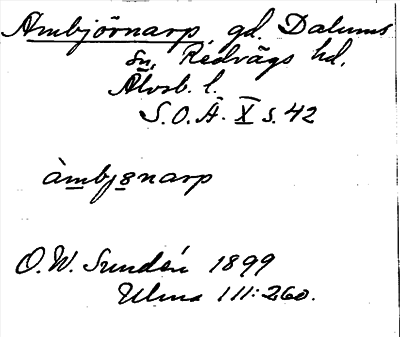 Ambjörnarp, gd. Dalums
sn, Redvägs hd.
Älvsb. l.
S.O.Ä. X s. 42
àmbjənarp
O.W. Sundén 1899
Ulma 111:260.